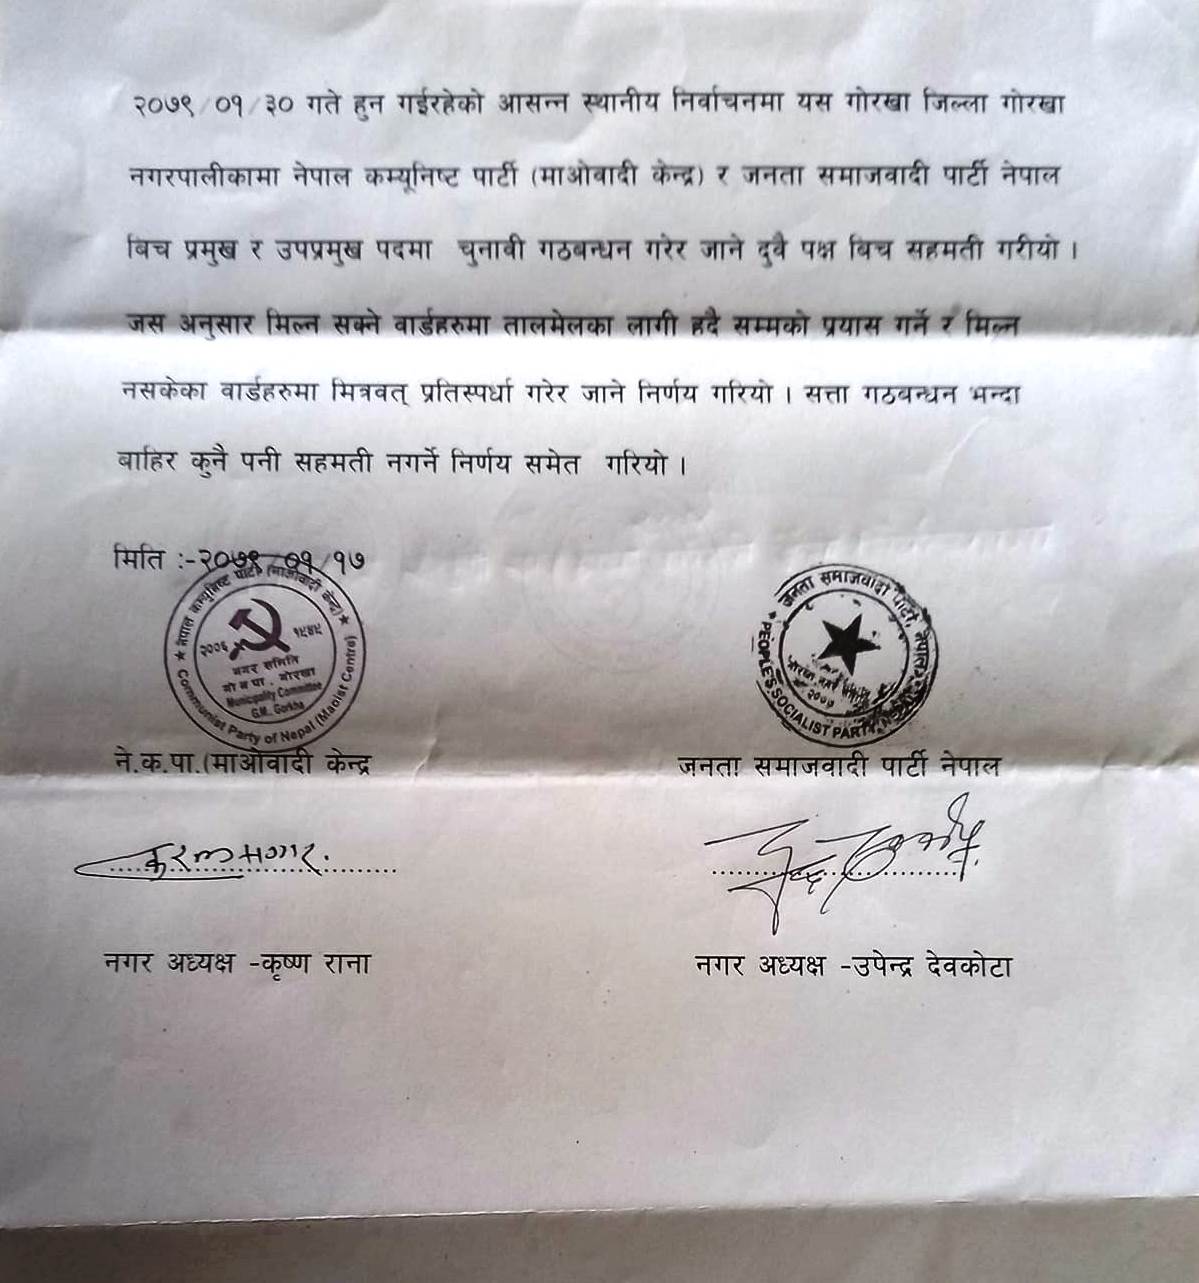 २०७९/०१/३० गते हुन गईरहेको आसन्न स्थानीय निर्वाचनमा यस गोरखा जिल्ला गोरखा
नगरपालीकामा नेपाल कम्यूनिष्ट पार्टी (माओवादी केन्द्र) र जनता समाजवादी पार्टी नेपाल
बिच प्रमुख र उपप्रमुख पदमा चुनावी गठबन्धन गरेर जाने दुबै पक्ष बिच सहमती गरीयो ।
जस अनुसार मिल्न सक्ने वार्डहरुमा तालमेलका लागी हदै सम्मको प्रयास गर्ने र मिल्न
नसकेका वार्डहरुमा मित्रवत् प्रतिस्पर्धा गरेर जाने निर्णय गरियो । सत्ता गठबन्धन भन्दा
बाहिर कुनै पनी सहमती नगर्ने निर्णय समेत गरियो ।
मिति :-२०७९/०१/१७
नेपाल कम्युनिष्ट पार्टी (माओवादी केन्द्र)
२००६ १९४९
नगर समिति
गो.न.पा. गोरखा
Municipality Committee
G.M., Gorkha
Communist Party of Nepal (Maoist Centre)
जनता समाजवादी पार्टी, नेपाल
२०७७
PEOPLE'S SOCIALIST PARTY
ने.क.पा.(माओवादी केन्द्र
जनता समाजवादी पार्टी नेपाल
नगर अध्यक्ष -कृष्ण राना
नगर अध्यक्ष -उपेन्द्र देवकोटा